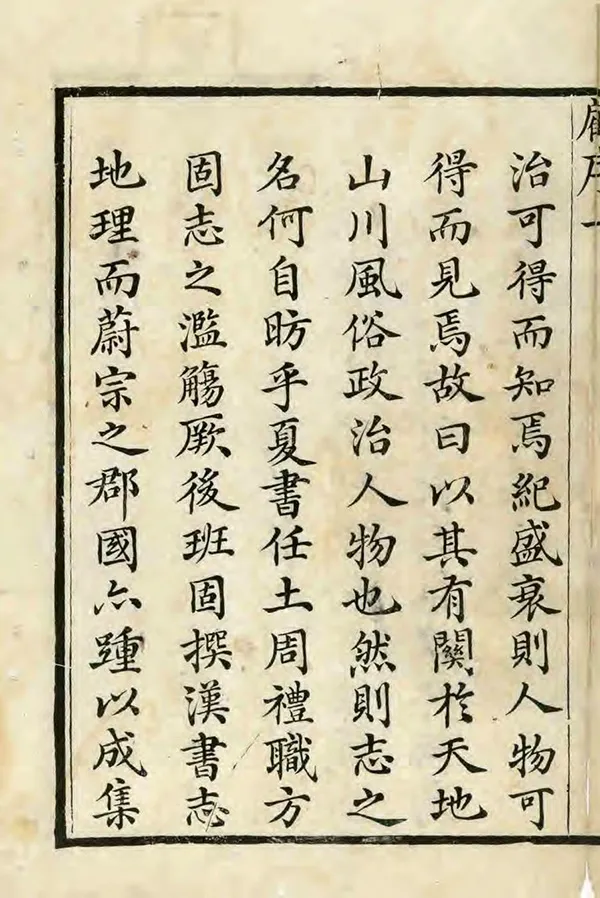 顧序一
治可得而知焉紀盛衰則人物可
得而見焉故曰以其有關於天地
山川風俗政治人物也然則志之
名何自昉乎夏書任土周禮職方
固志之濫觴厥後班固撰漢書志
地理而蔚宗之郡國亦踵以成集